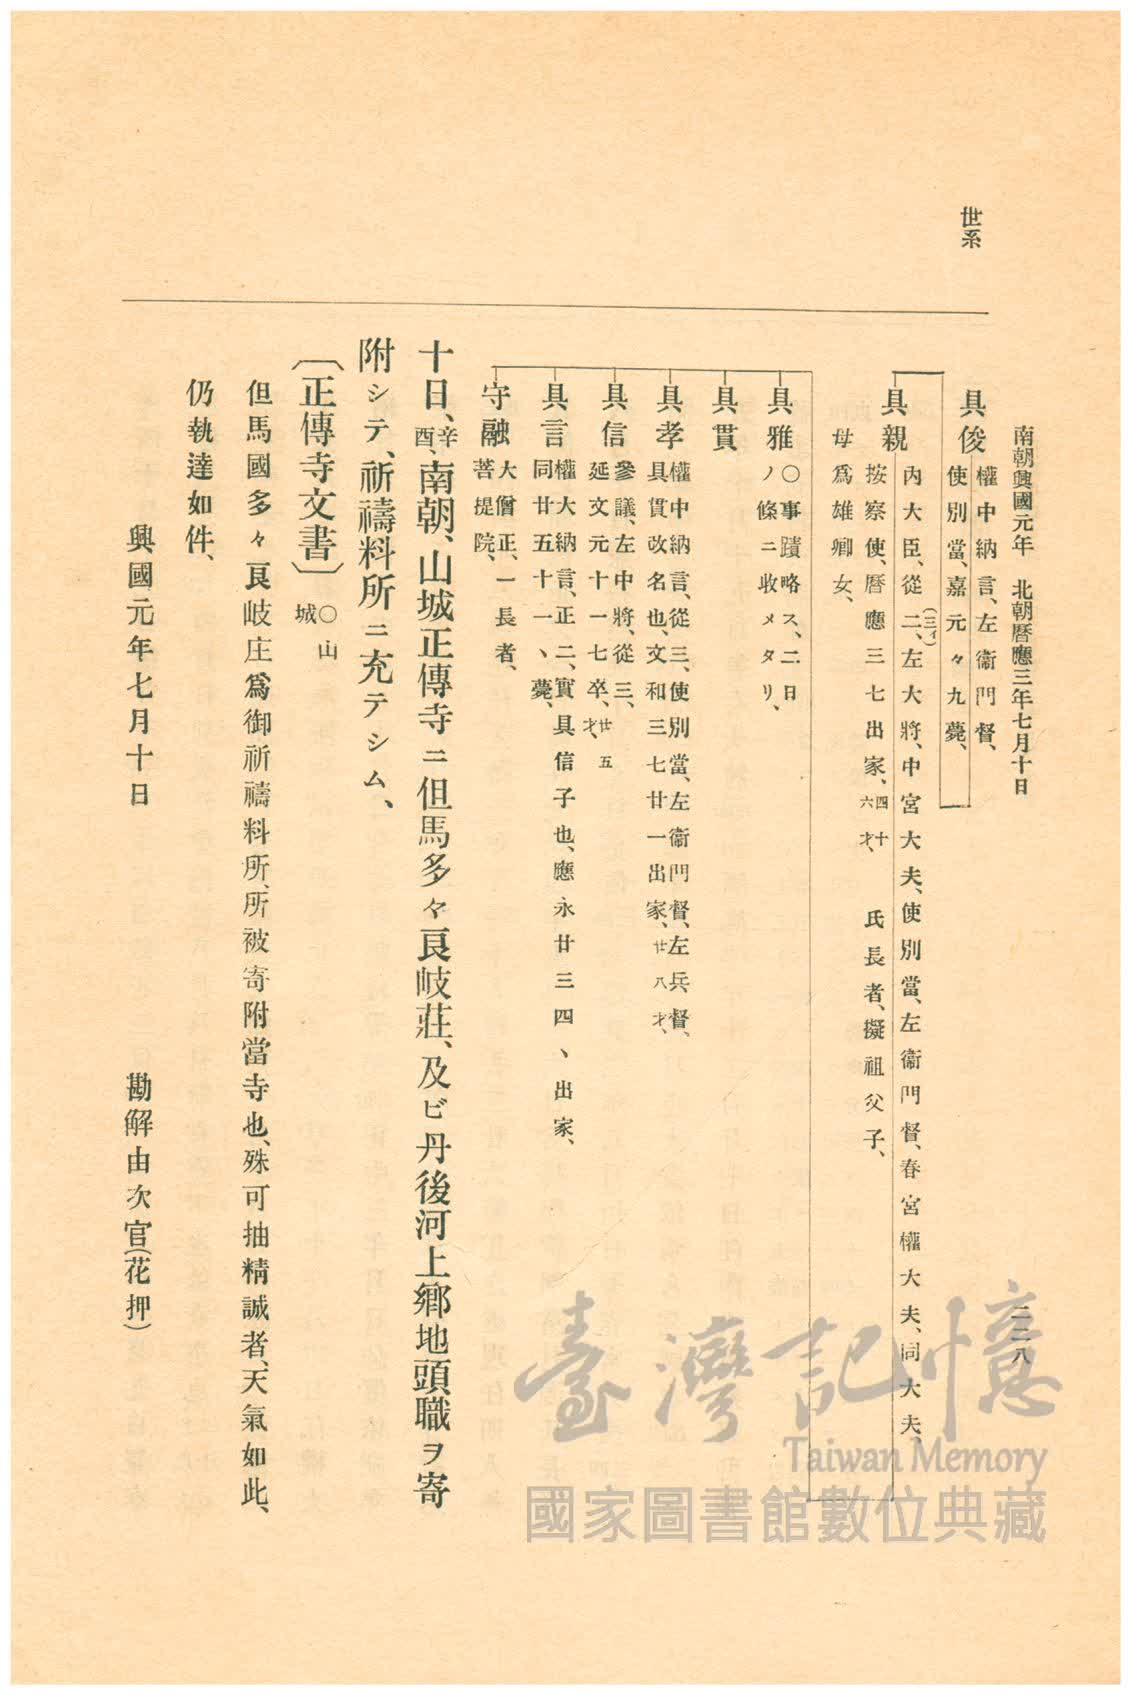 南朝興國元年　北朝曆應三年七月十日
二二八
世系
具俊
權中納言、左衞門督、
使別當、嘉元々九薨、
具親
內大臣、從二、(三イ)左大將、中宮大夫、使別當、左衞門督、春宮權大夫、同大夫、
按察使、曆應三七出家、四十六才、　氏長者、擬祖父子、
母爲雄卿女、
具雅
○事蹟略ス、二日
ノ條ニ收メタリ、
具貫
具孝
權中納言、從三、使別當、左衞門督、左兵督、
具貫改名也、文和三七廿一出家、廿八才、
具信
參議、左中將、從三、
延文元十一七卒、廿五才、
具言
權大納言、正二、實具信子也、應永廿三四、出家、
同廿五十一、薨、
守融
大僧正、一長者、
菩提院、
十日、辛酉、南朝、山城正傳寺ニ但馬多々良岐莊、及ビ丹後河上鄉地頭職ヲ寄
附シテ、祈禱料所ニ充テシム、
〔正傳寺文書〕○山城
但馬國多々良岐庄爲御祈禱料所、所被寄附當寺也、殊可抽精誠者、天氣如此、
仍執達如件、
興國元年七月十日　勘解由次官(花押)
臺灣記憶
Taiwan Memory
國家圖書館數位典藏